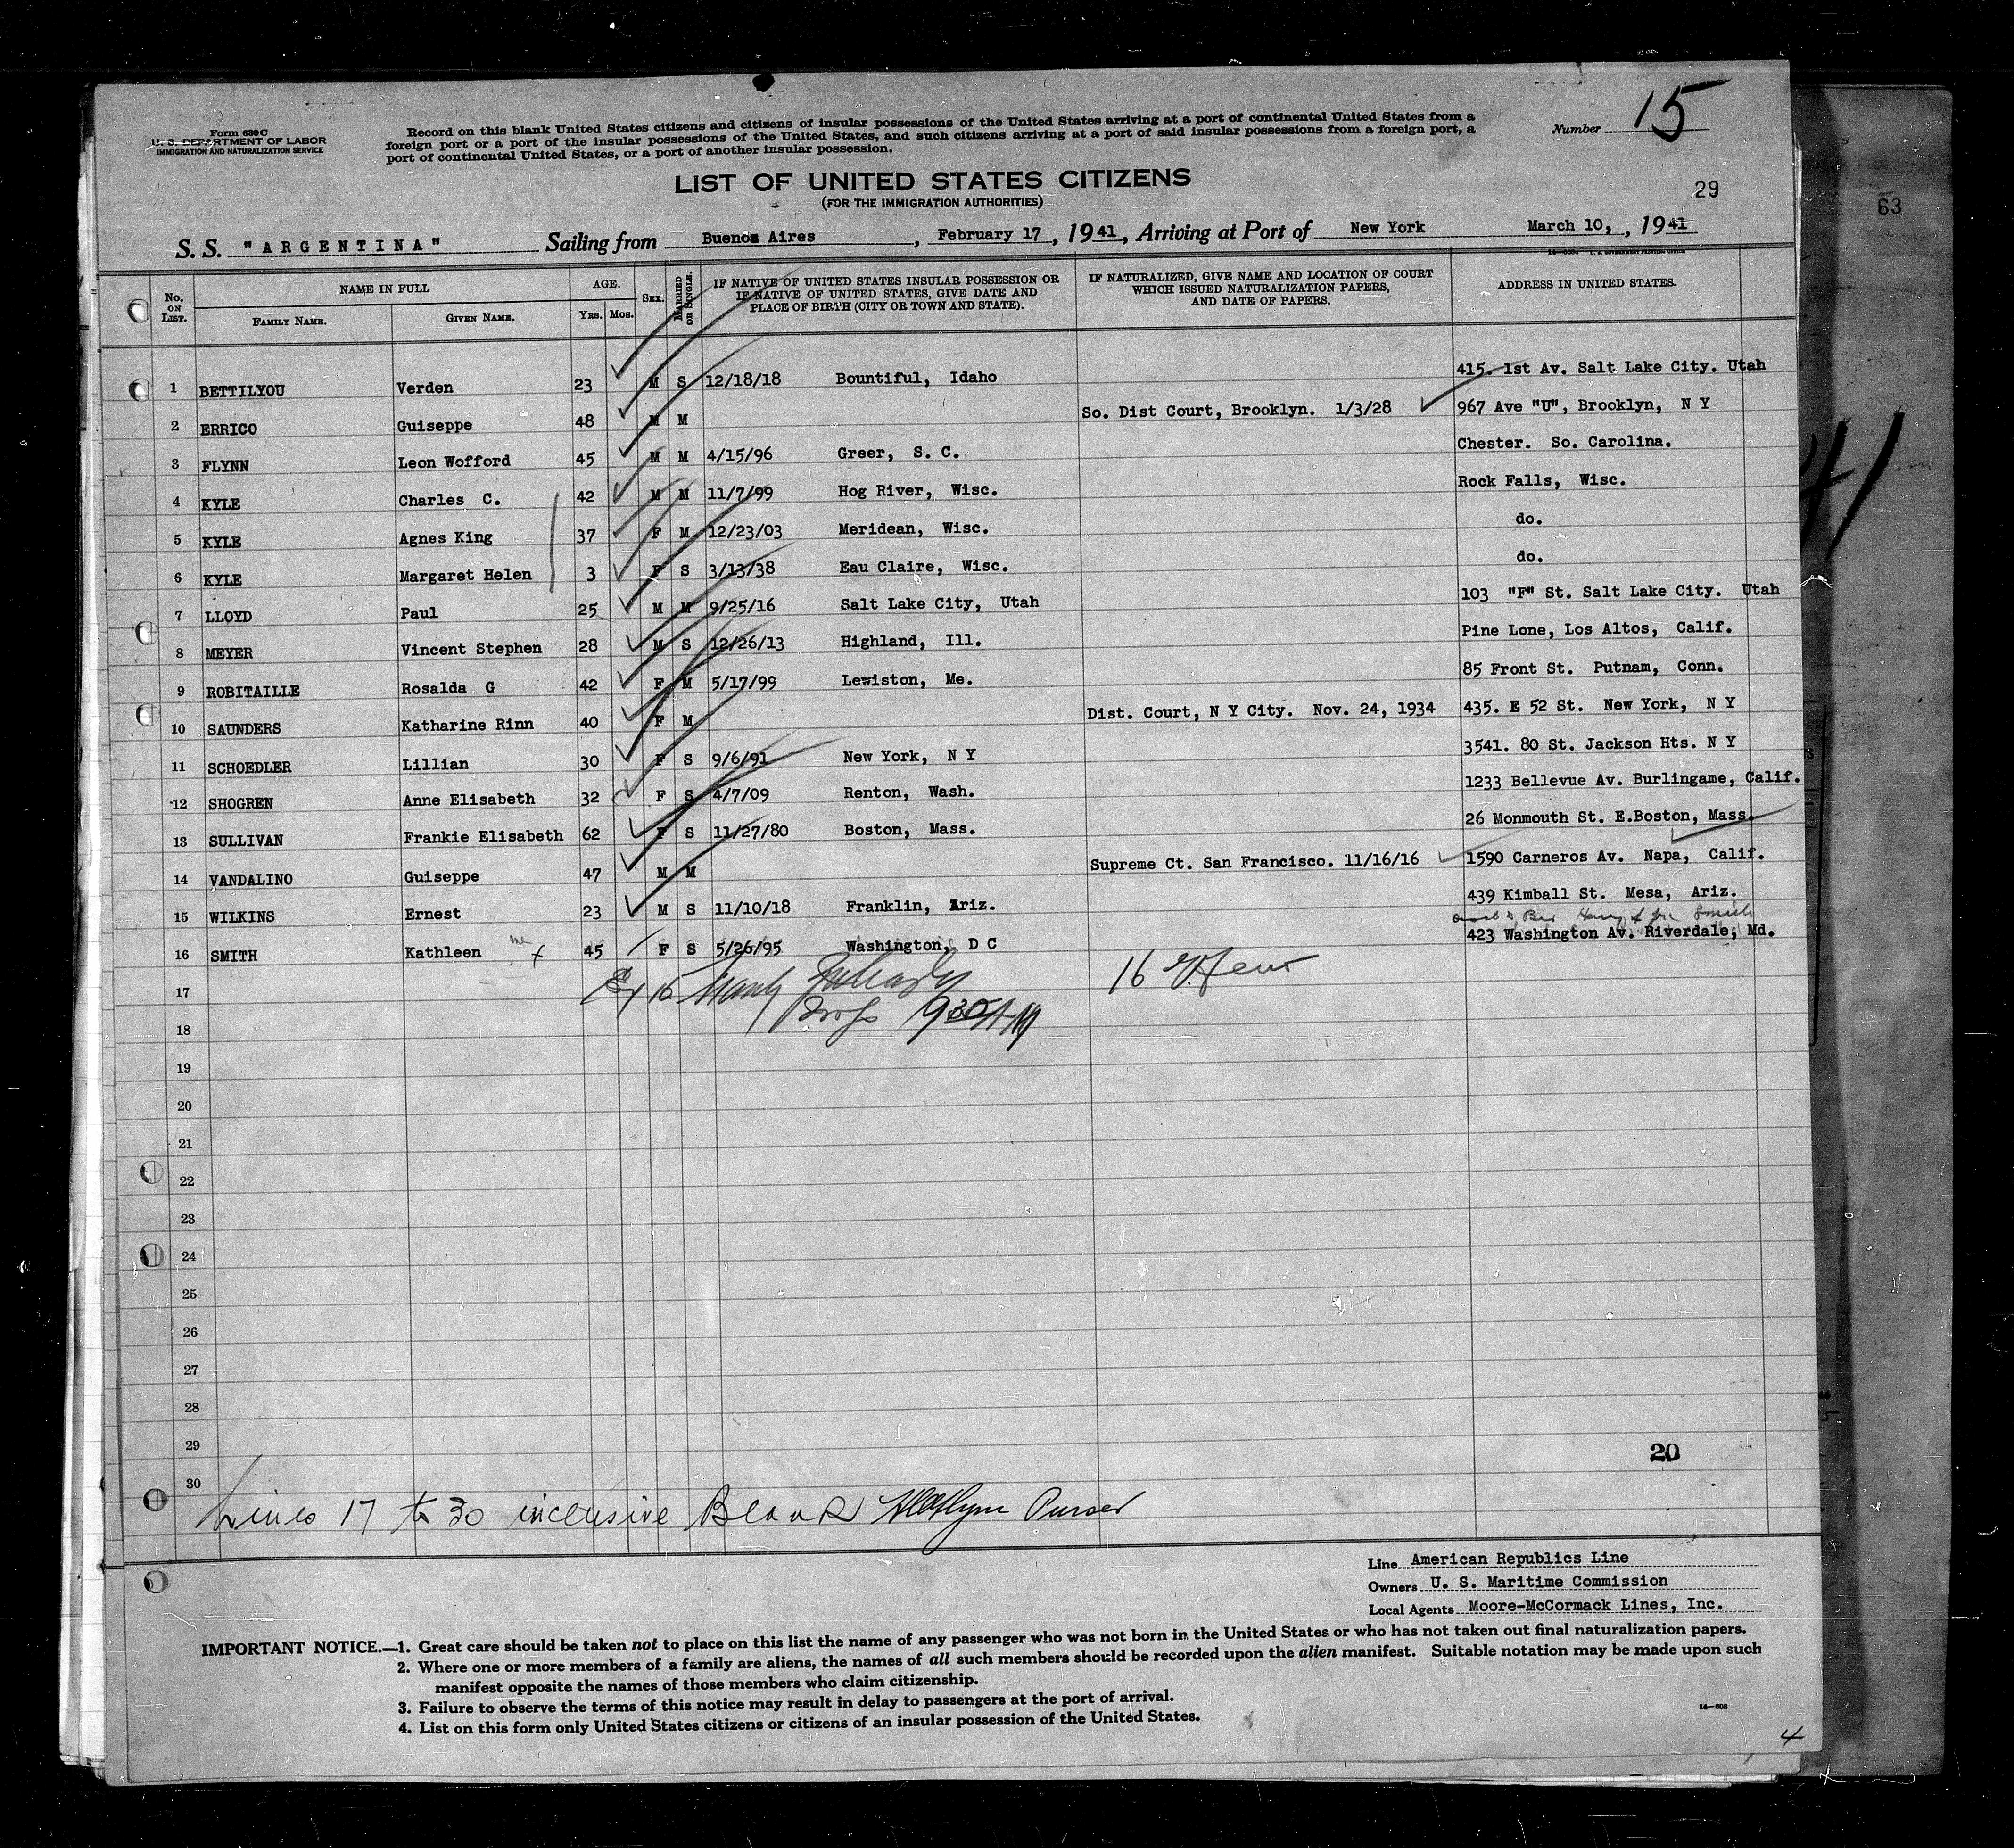 Form 630 C
U. S. DEPARTMENT OF LABOR
IMMIGRATION AND NATURALIZATION SERVICE
Record on this blank United States citizens and citizens of insular possessions of the United States arriving at a port of continental United States from a
foreign port or a port of the insular possessions of the United States, and such citizens arriving at a port of said insular possessions from a foreign port, a
port of continental United States, or a port of another insular possession.
Number 15
LIST OF UNITED STATES CITIZENS
(FOR THE IMMIGRATION AUTHORITIES)
29
63
S. S. "ARGENTINA" Sailing from Buenos Aires, February 17, 1941, Arriving at Port of New York March 10,, 1941
No. ON LIST. NAME IN FULL FAMILY NAME. GIVEN NAME. AGE. YRS. MOS. SEX. MARRIED OR SINGLE. IF NATIVE OF UNITED STATES INSULAR POSSESSION OR IF NATIVE OF UNITED STATES, GIVE DATE AND PLACE OF BIRTH (CITY OR TOWN AND STATE). IF NATURALIZED, GIVE NAME AND LOCATION OF COURT WHICH ISSUED NATURALIZATION PAPERS, AND DATE OF PAPERS. ADDRESS IN UNITED STATES.
1 BETTILYOU Verden 23 M S 12/18/18 Bountiful, Idaho 415. 1st Av. Salt Lake City. Utah
2 ERRICO Guiseppe 48 M M So. Dist Court, Brooklyn. 1/3/28 967 Ave "U", Brooklyn, N Y
3 FLYNN Leon Wofford 45 M M 4/15/96 Greer, S. C. Chester. So. Carolina.
4 KYLE Charles C. 42 M M 11/7/99 Hog River, Wisc. Rock Falls, Wisc.
5 KYLE Agnes King 37 F M 12/23/03 Meridean, Wisc. do.
6 KYLE Margaret Helen 3 F S 3/13/38 Eau Claire, Wisc. do.
7 LLOYD Paul 25 M M 9/25/16 Salt Lake City, Utah 103 "F" St. Salt Lake City. Utah
8 MEYER Vincent Stephen 28 M S 12/26/13 Highland, Ill. Pine Lone, Los Altos, Calif.
9 ROBITAILLE Rosalda G 42 F M 5/17/99 Lewiston, Me. 85 Front St. Putnam, Conn.
10 SAUNDERS Katharine Rinn 40 F M Dist. Court, N Y City. Nov. 24, 1934 435. E 52 St. New York, N Y
11 SCHOEDLER Lillian 30 F S 9/6/91 New York, N Y 3541. 80 St. Jackson Hts. N Y
12 SHOGREN Anne Elisabeth 32 F S 4/7/09 Renton, Wash. 1233 Bellevue Av. Burlingame, Calif.
13 SULLIVAN Frankie Elisabeth 62 F S 11/27/80 Boston, Mass. 26 Monmouth St. E.Boston, Mass.
14 VANDALINO Guiseppe 47 M M Supreme Ct. San Francisco. 11/16/16 1590 Carneros Av. Napa, Calif.
15 WILKINS Ernest 23 M S 11/10/18 Franklin, Ariz. 439 Kimball St. Mesa, Ariz.
16 SMITH Kathleen 45 F S 5/26/95 Washington, D C 423 Washington Av. Riverdale, Md.
17
18
19
20
21
22
23
24
25
26
27
28
29
20
30
Lines 17 to 30 inclusive Blank Purser
Line American Republics Line
Owners U. S. Maritime Commission
Local Agents Moore-McCormack Lines, Inc.
IMPORTANT NOTICE.—1. Great care should be taken not to place on this list the name of any passenger who was not born in the United States or who has not taken out final naturalization papers.
2. Where one or more members of a family are aliens, the names of all such members should be recorded upon the alien manifest. Suitable notation may be made upon such
manifest opposite the names of those members who claim citizenship.
3. Failure to observe the terms of this notice may result in delay to passengers at the port of arrival.
4. List on this form only United States citizens or citizens of an insular possession of the United States.
4